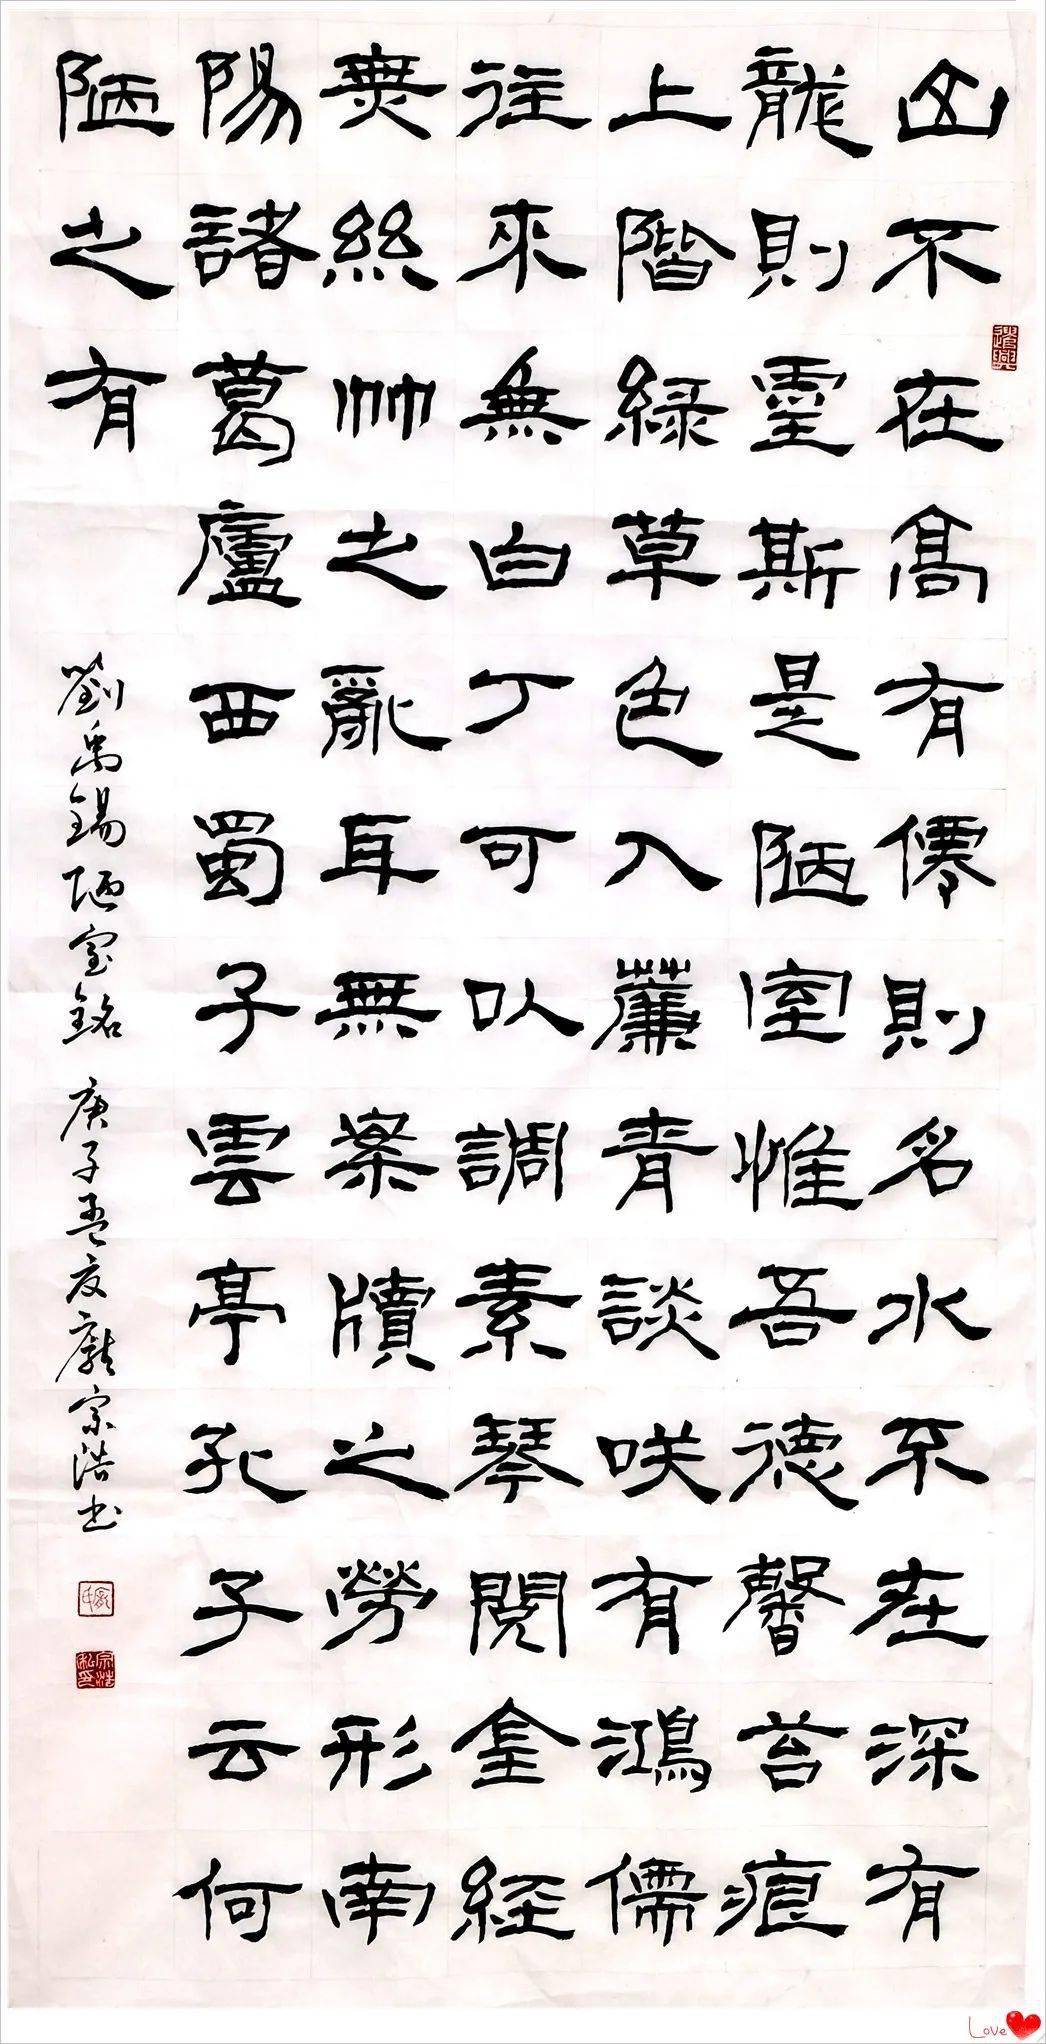 山不在高有僊則名水不在深有
龍則靈斯是陋室惟吾德馨苔痕
上階緑草色入簾青談咲有鴻儒
往來無白丁可以調素琴閱金經
無絲竹之亂耳無案牘之勞形南
陽諸葛廬西蜀子雲亭孔子云何
陋之有
劉禹錫陋室銘 庚子孟夏龐宗浩书
宗浩私印
Love